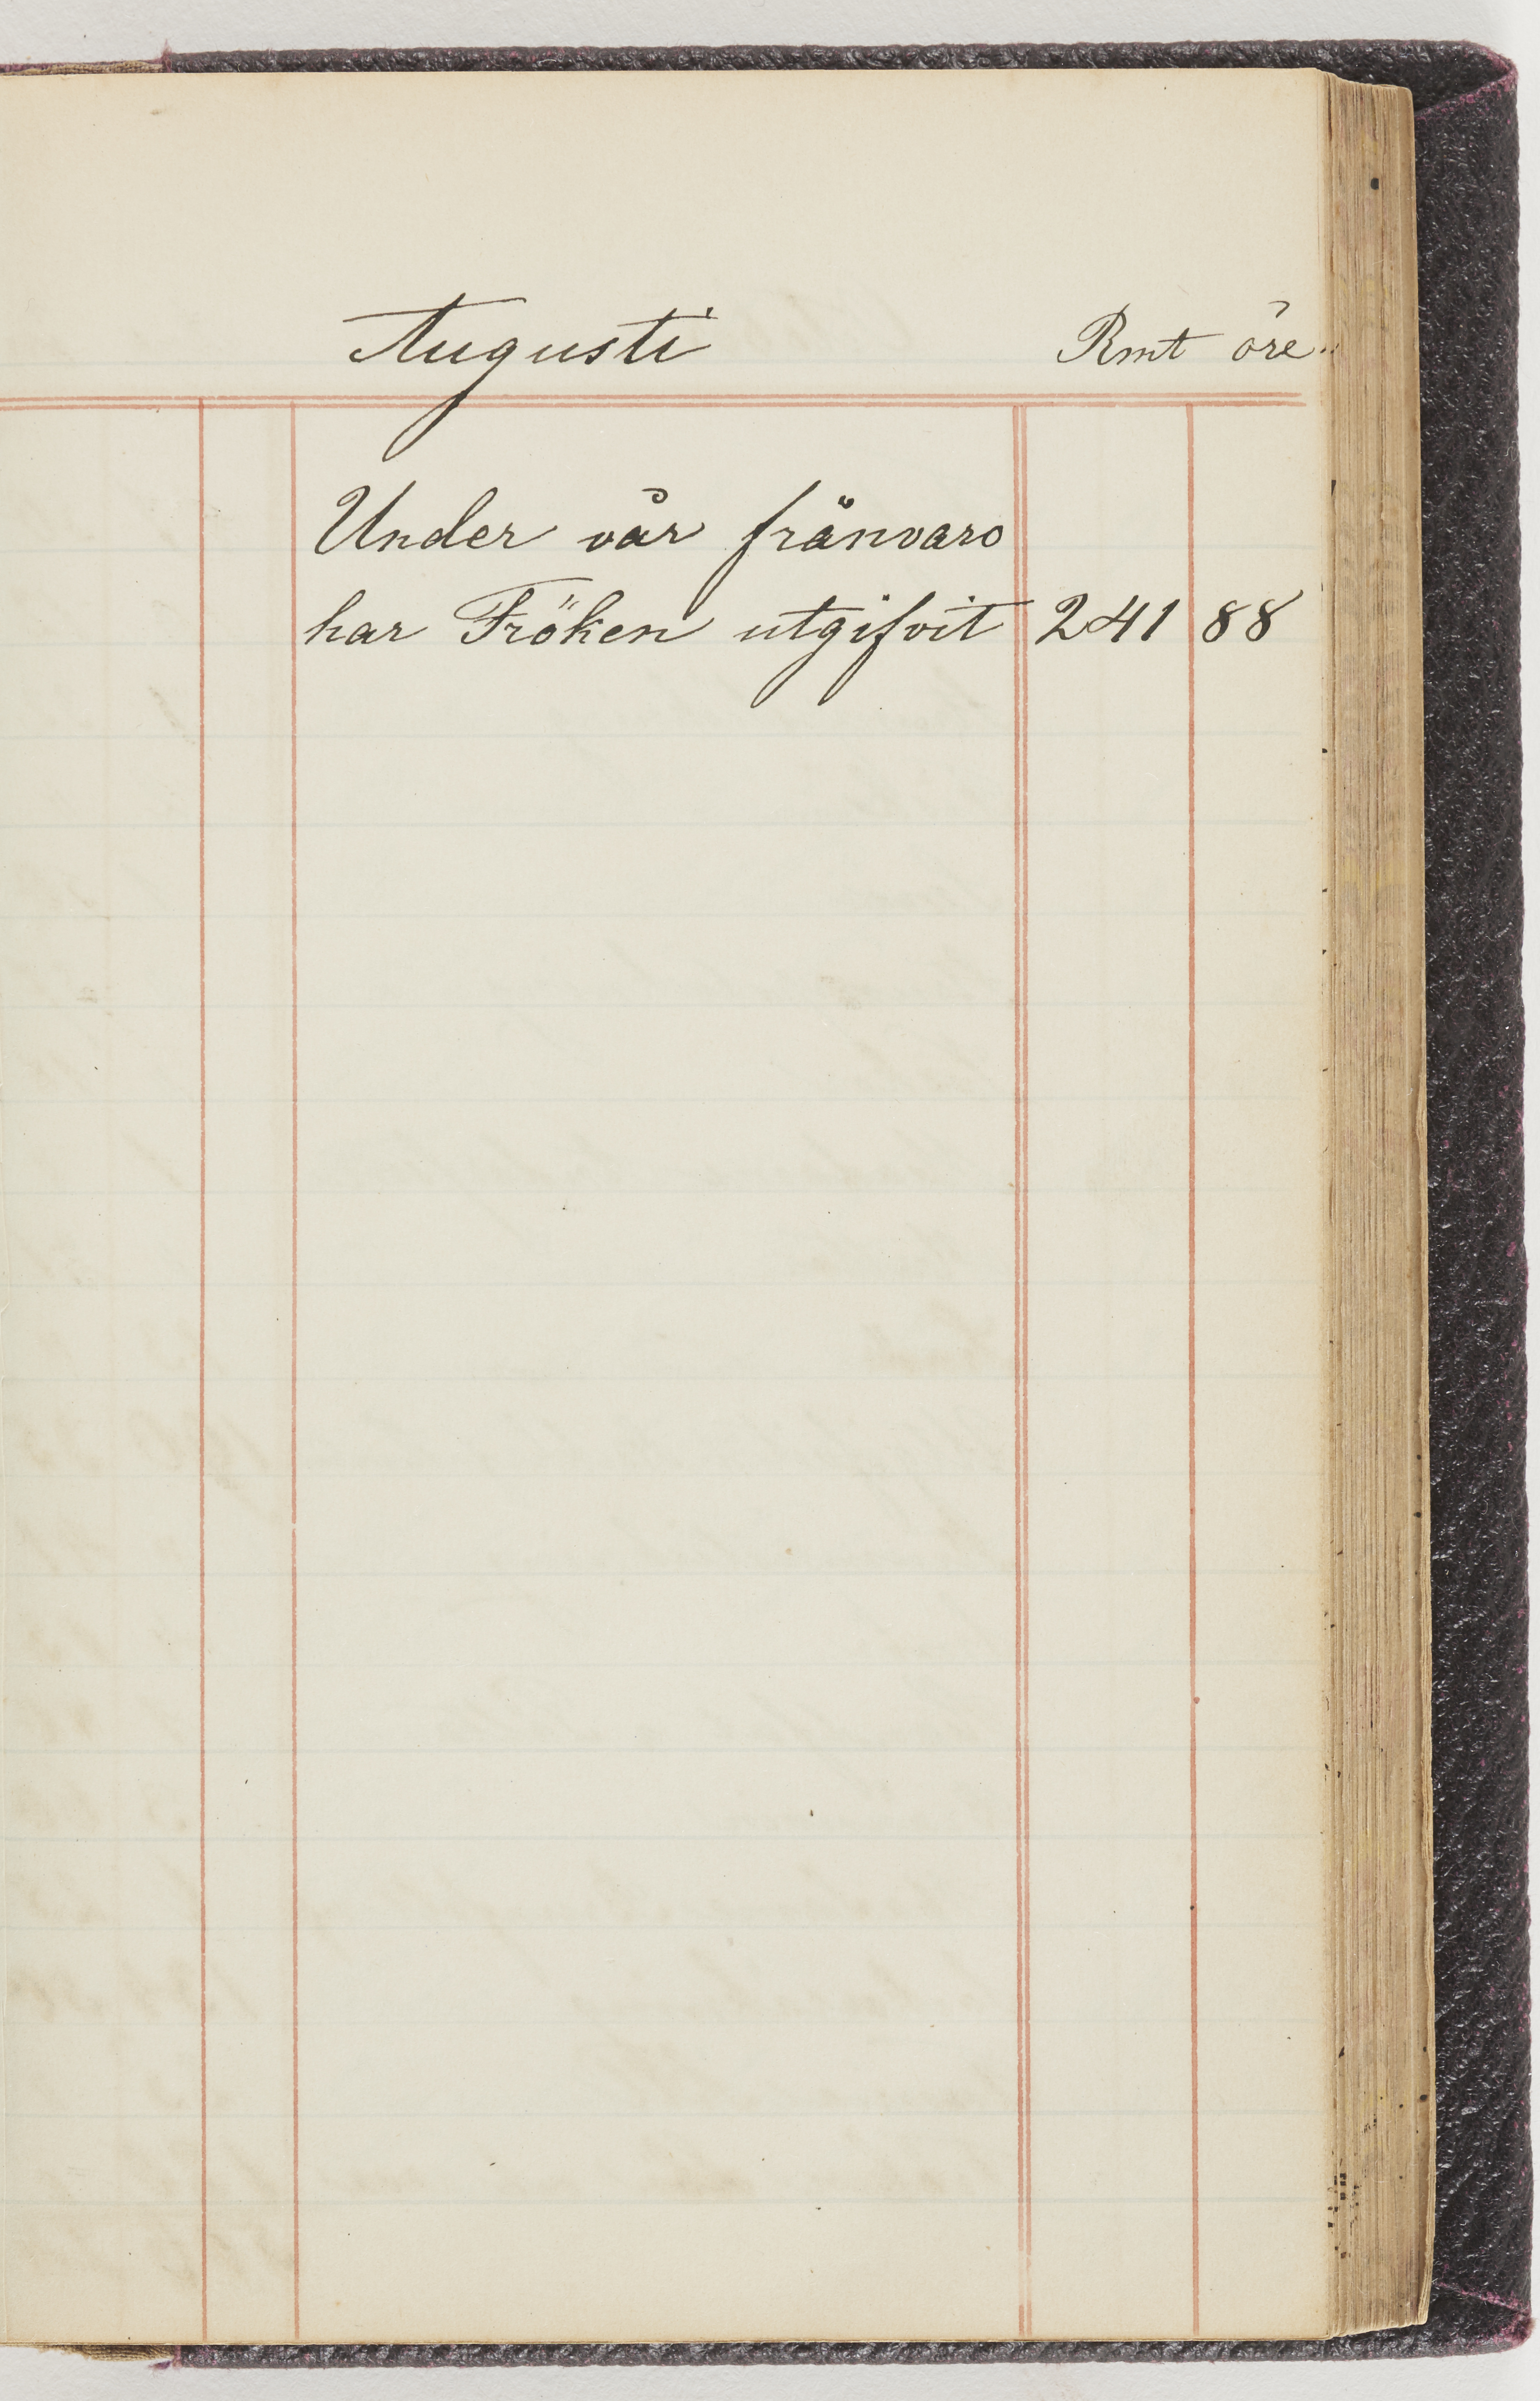 Augusti Rmt öre
Under vår frånvaro
har Fröken utgifvit 241 88